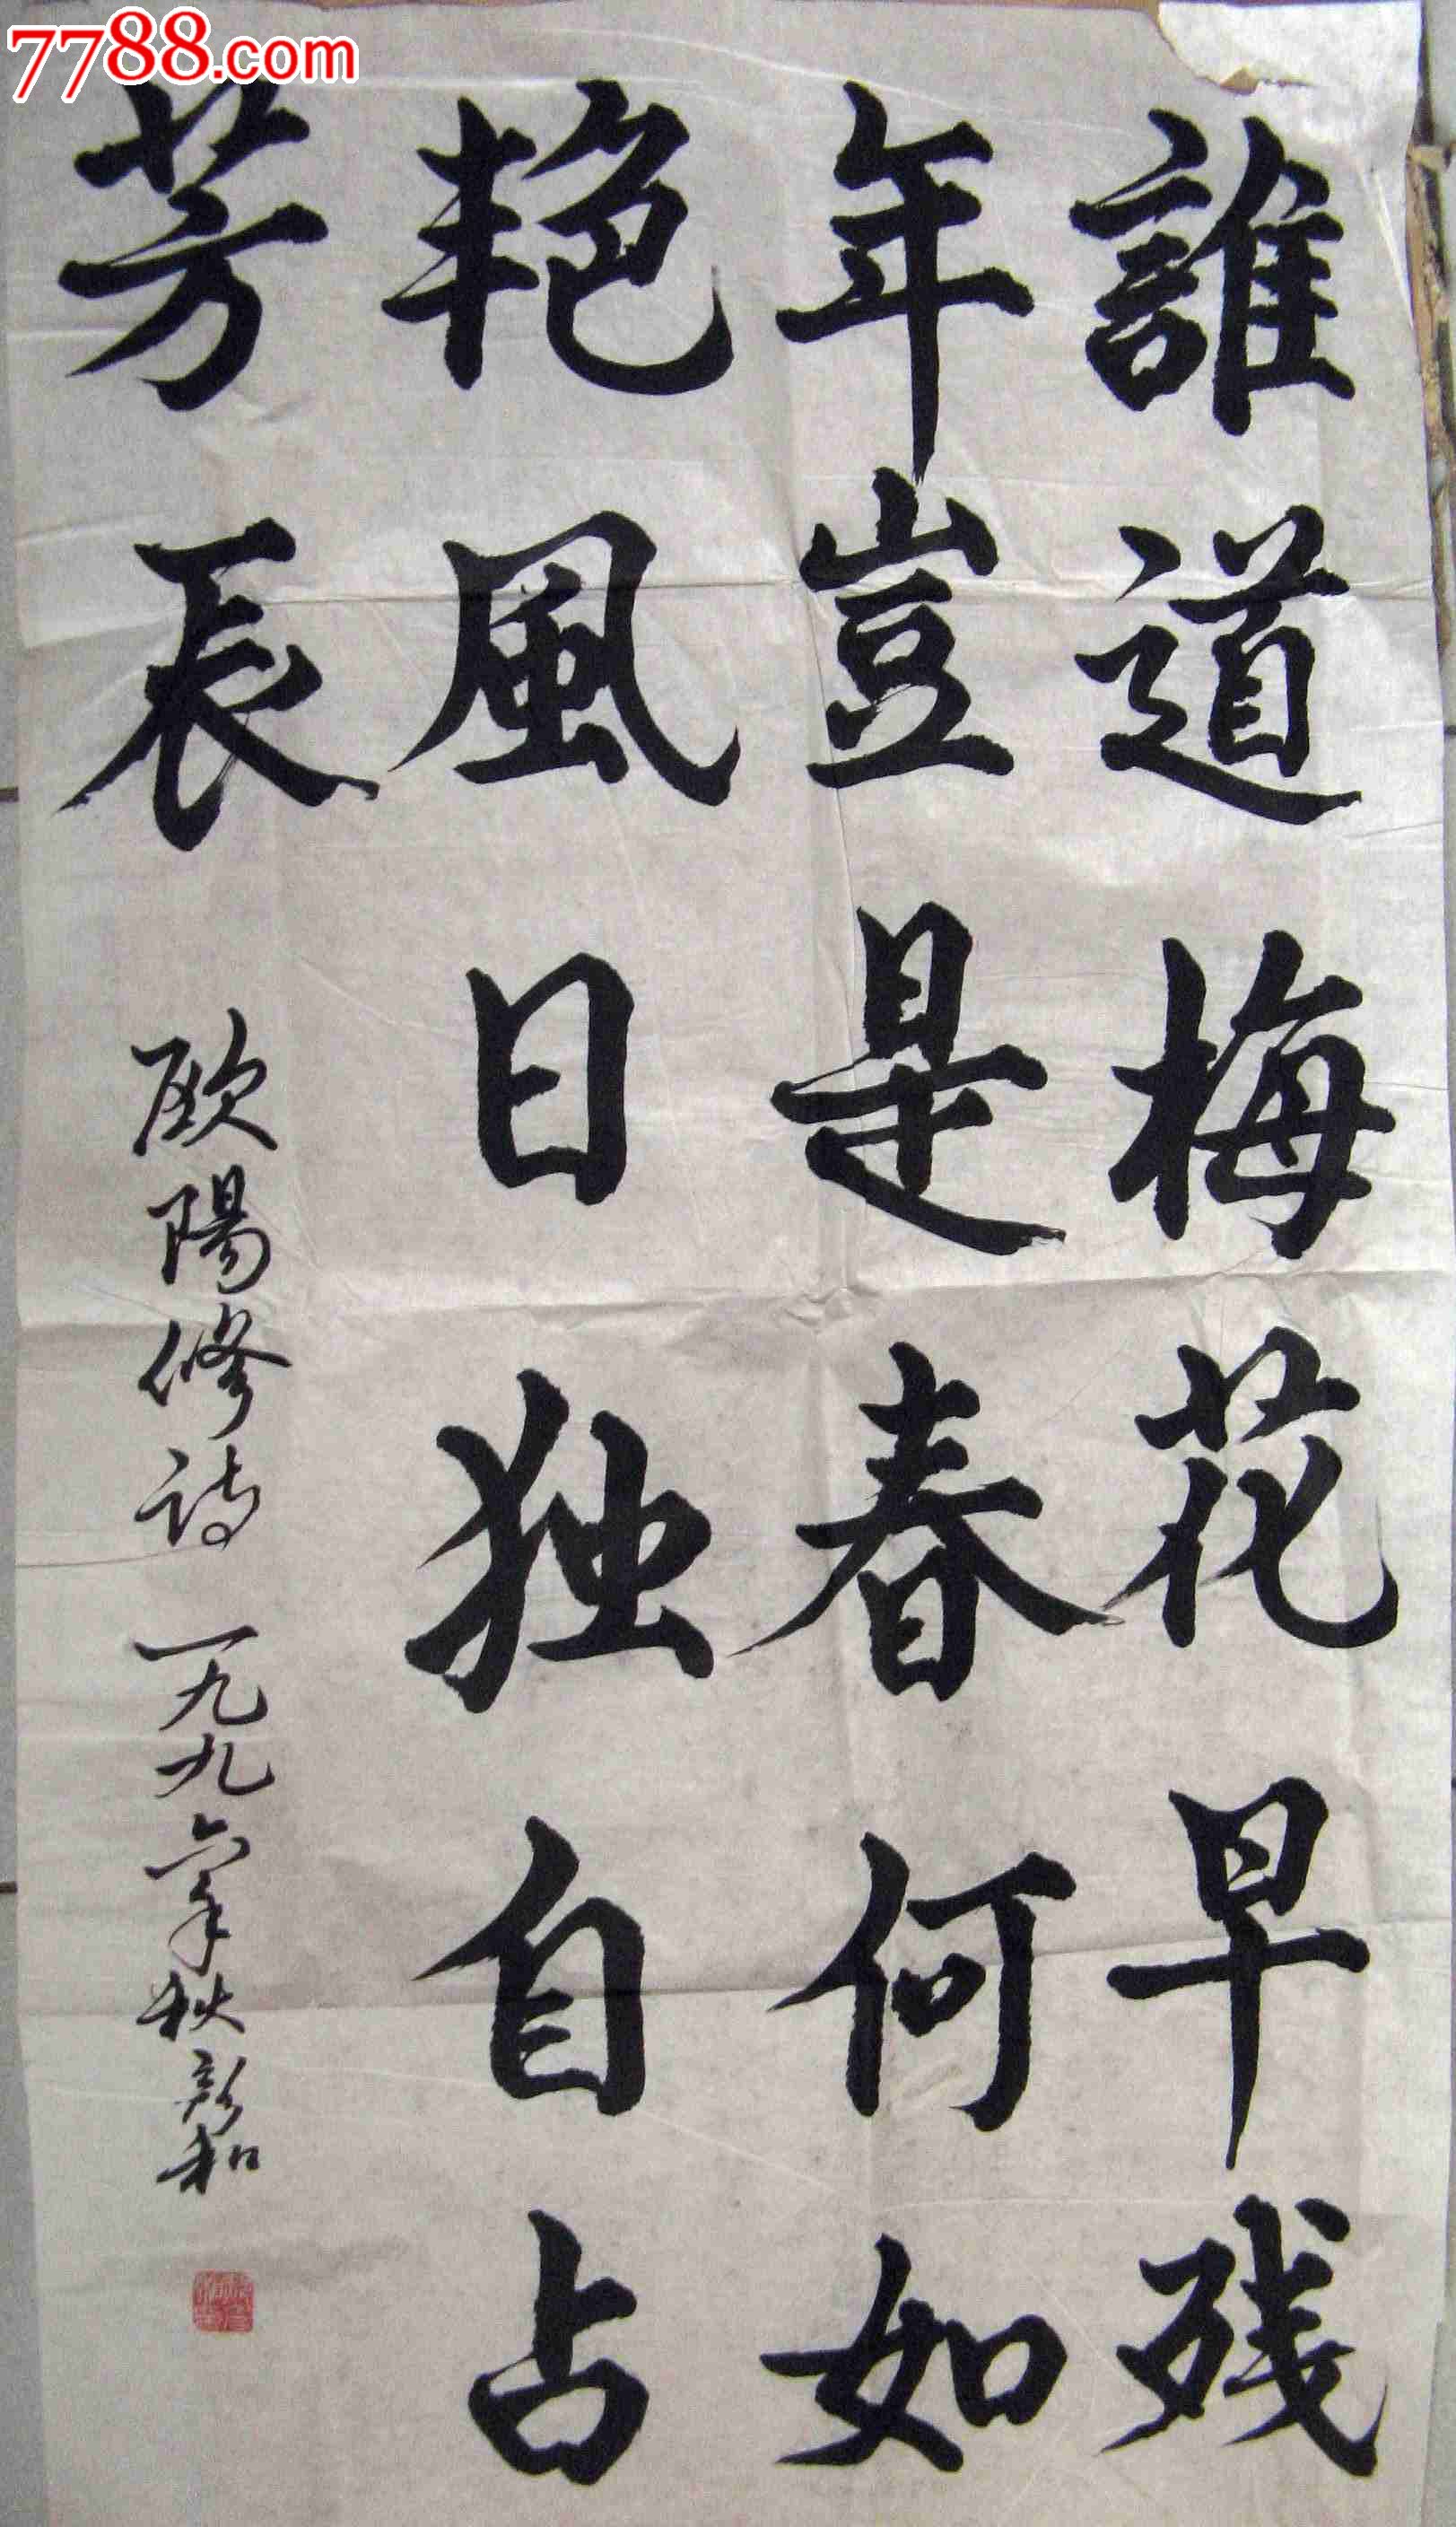 7788.com
誰道梅花早残
年豈是春何如
艳風日独自占
芳辰
欧陽修诗 一九九六年秋 彭和